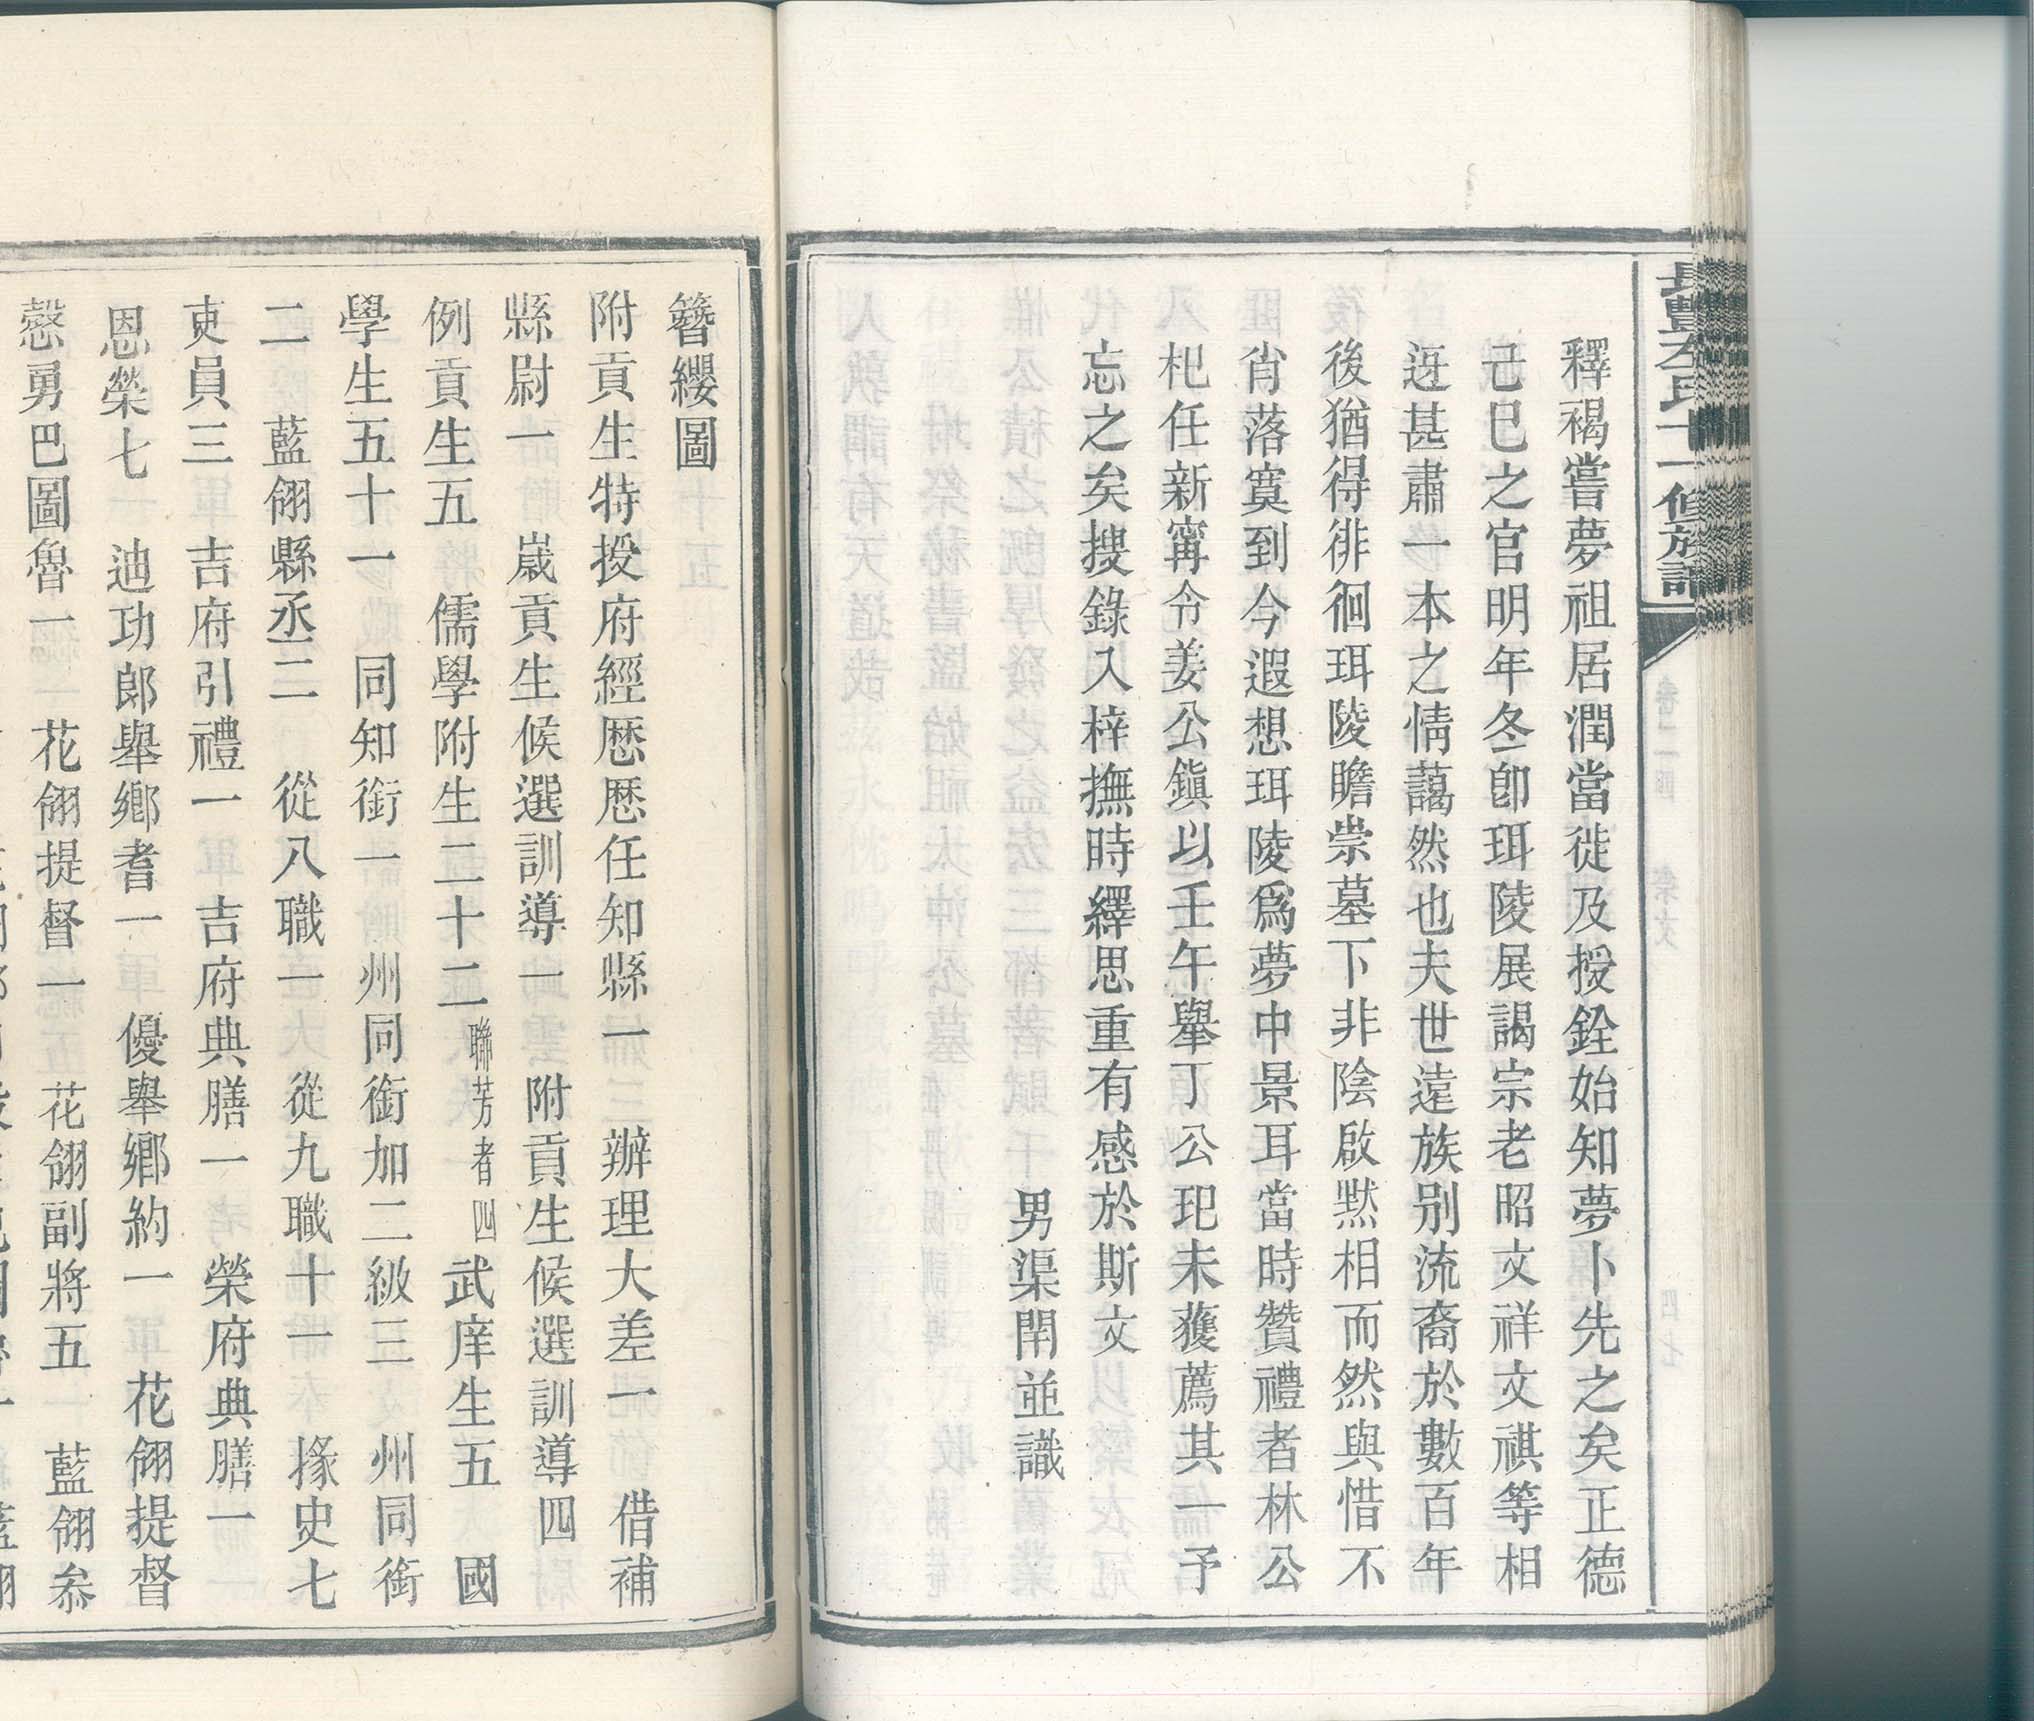 長豐左氏十一修族譜
釋褐嘗夢祖居潤當徙及授銓始知夢卜先之矣正德
己巳之官明年冬卽珥陵展謁宗老昭文祥文祺等相
迓甚肅一本之情藹然也夫世遠族别流裔於數百年
後猶得徘徊珥陵瞻崇墓下非陰啟默相而然與惜不
肖落寞到今遐想珥陵爲夢中景耳當時贊禮者林公
杞任新甯令姜公鎭以壬午舉丁公玘未薦其一予
忘之矣搜錄入梓撫時繹思重有感於斯文
男渠閈並識
簪纓圖
附貢生特授府經歷歷任知縣一 辦理大差一 借補
縣尉一 歲貢生候選訓導一 附貢生候選訓導四
例貢生五 儒學附生二十二 聯芳者四 武庠生五 國
學生五十一 同知銜一 州同銜加二級三 州同銜
二 藍翎縣丞二 從八職一 從九職十一 掾史七
吏員三 吉府引禮一 吉府典膳一 榮府典膳一
恩榮七 迪功郎舉鄉耆一 優舉鄉約一 花翎提督
慤勇巴圖魯一 花翎提督一 花翎副將五 藍翎叅